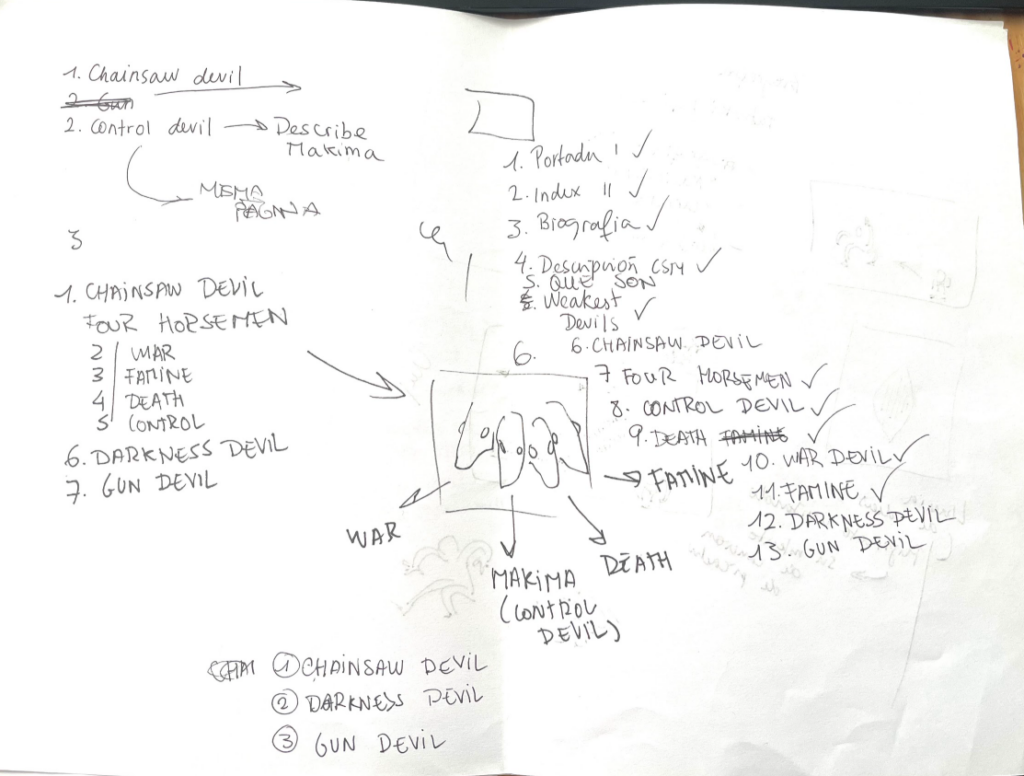 1. Chainsaw devil
2. Gun
2. Control devil → Describe
Makima
MISMA
PAGINA
3
1. CHAINSAW DEVIL
FOUR HORSEMEN
2 WAR
3 FAMINE
4 DEATH
5 CONTROL
6. DARKNESS DEVIL
7. GUN DEVIL
1. Portada I ✓
2. Index II ✓
3. Biografia ✓
4. Descripción CSM ✓
5. QUE SON
Weakest
Devils ✓
6. CHAINSAW DEVIL
7 FOUR HORSEMEN ✓
8. CONTROL DEVIL ✓
9. DEATH FAMINE ✓
10. WAR DEVIL ✓
11. FAMINE ✓
12. DARKNESS DEVIL
13. GUN DEVIL
6.
FAMINE
WAR
DEATH
MAKIMA
(CONTROL
DEVIL)
CHA ① CHAINSAW DEVIL
② DARKNESS DEVIL
③ GUN DEVIL